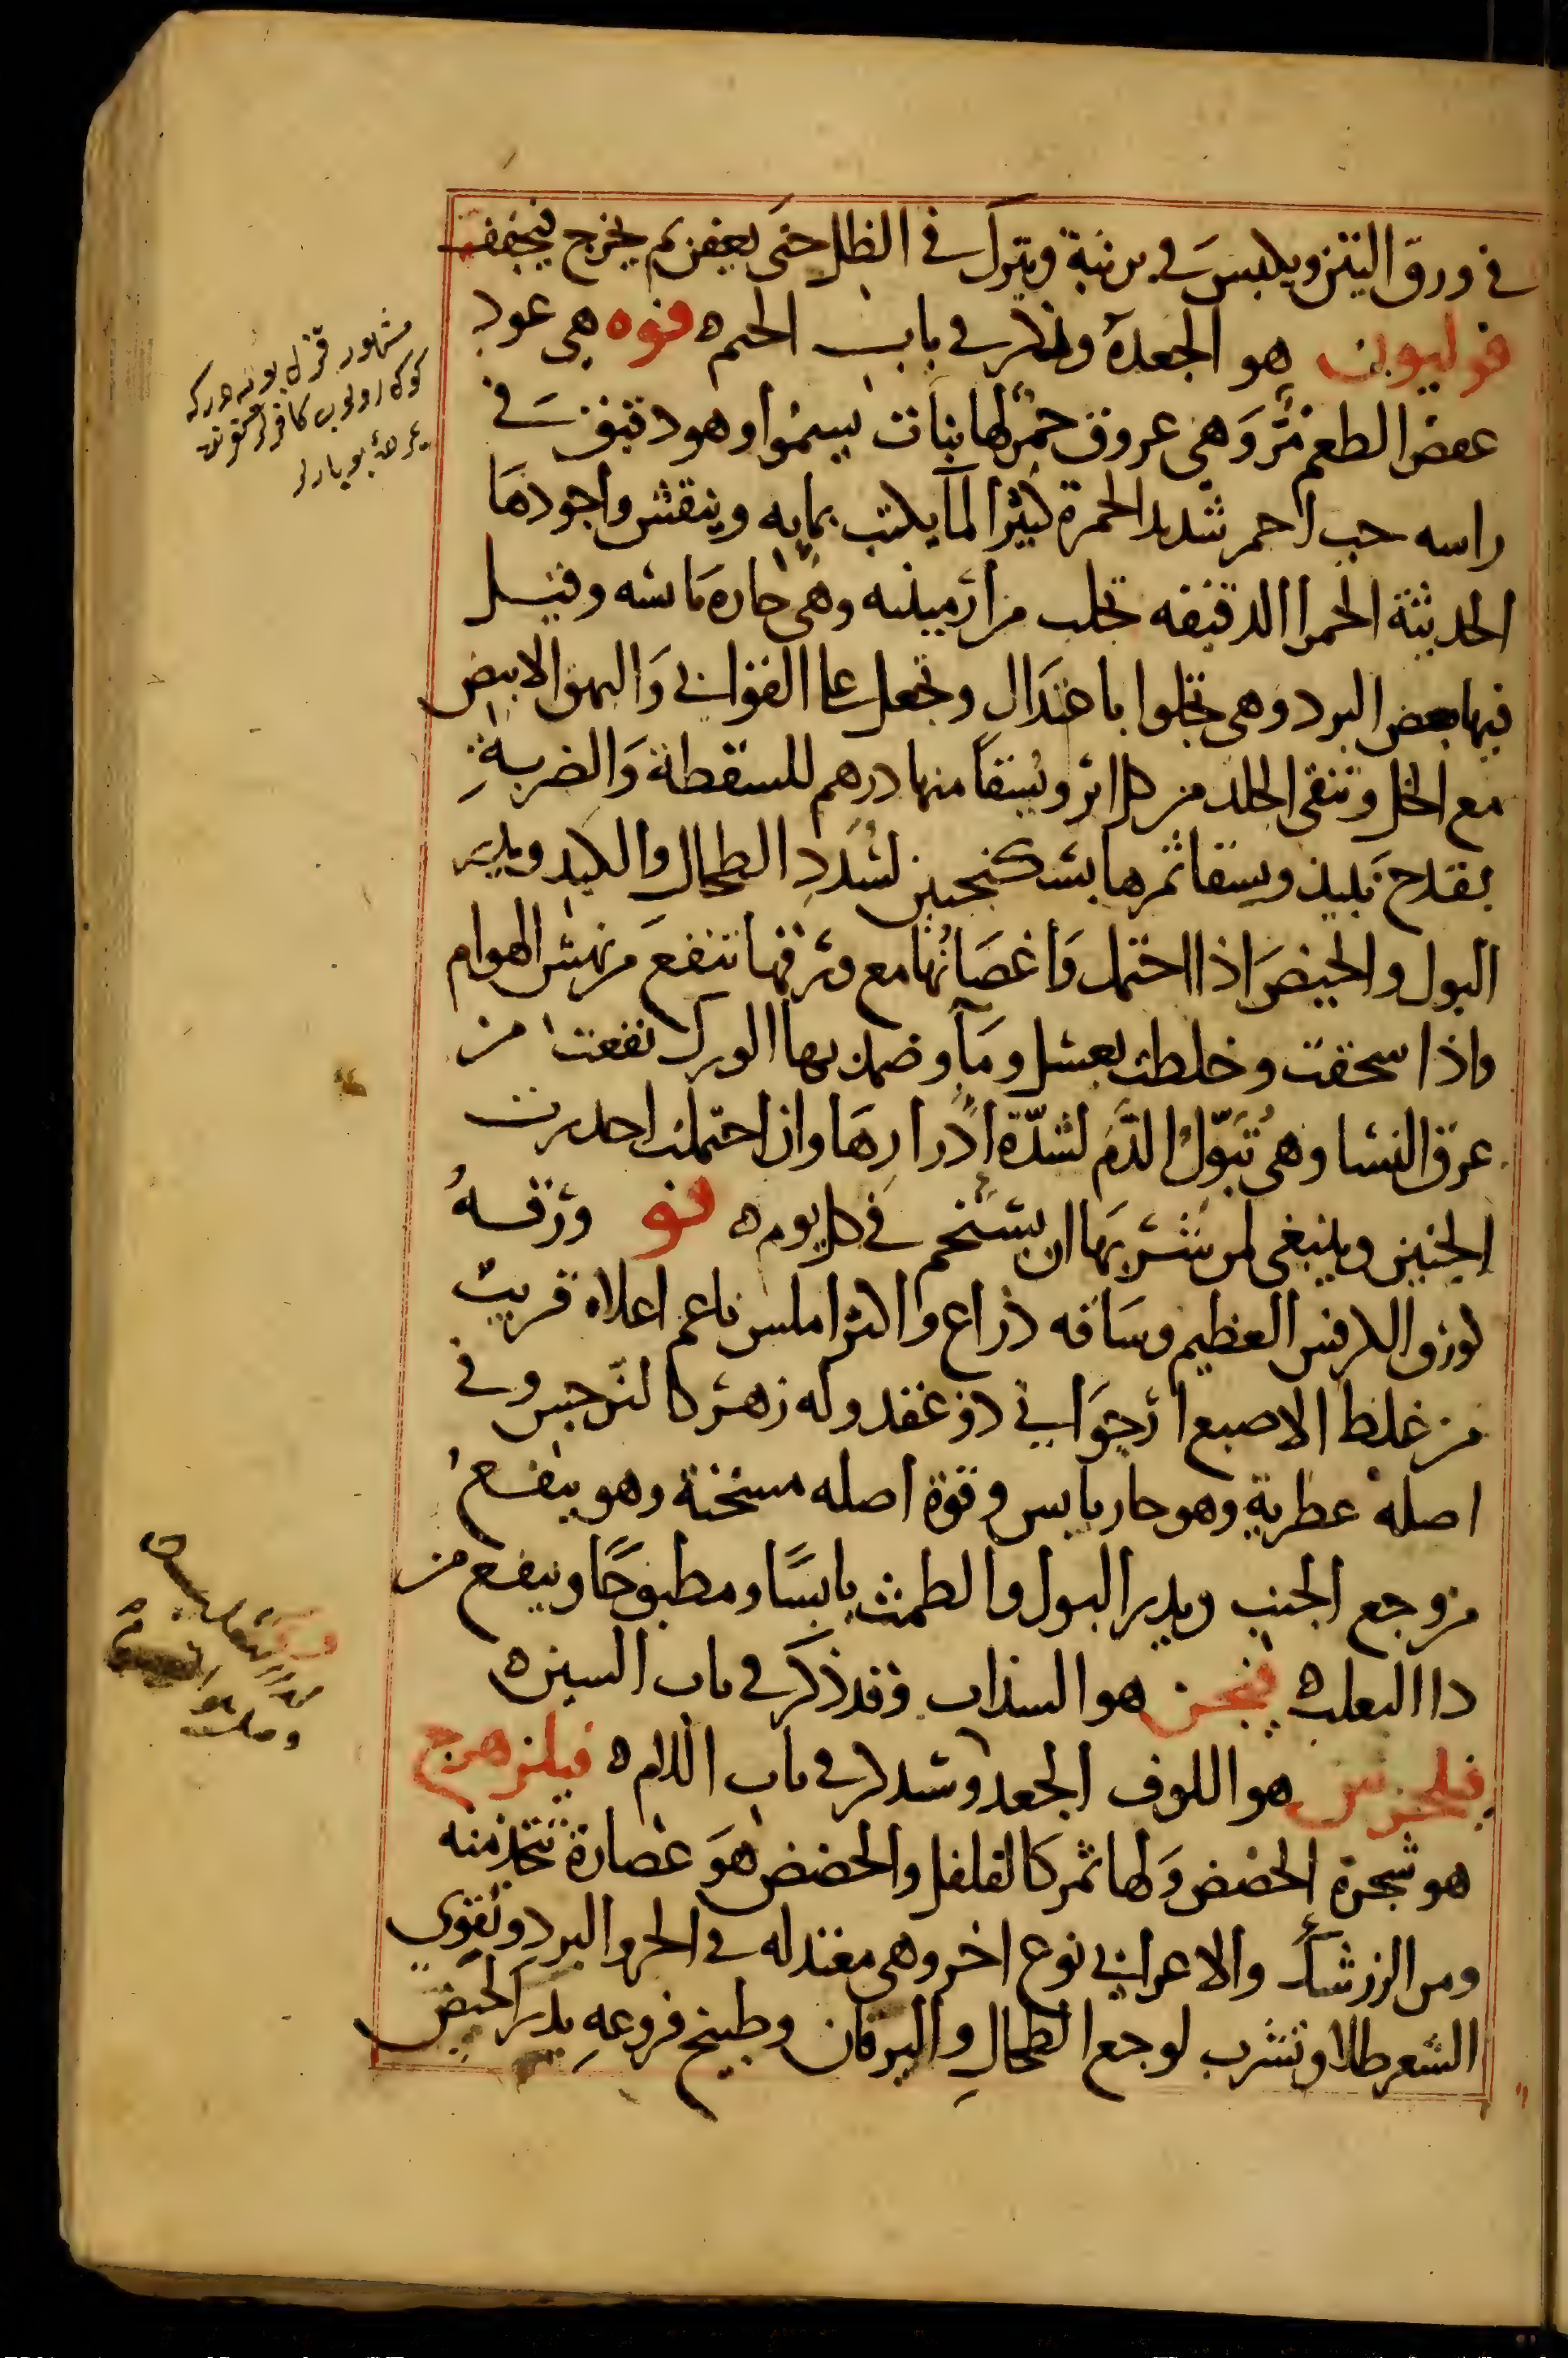 في ورق التين ويكبس في برنية ويترك في الظل حتى يعفن ثم يخرج فيجفف
فوليون هو الجعدة وذكر في باب الجيم ه فوه هي عود
عفص الطعم مر وهي عروق حمر لها نبات يسموا وهو دقيق في
راسه حب احمر شديد الحمرة كثير الماء يكتب بمايه وينقش واجودها
الحديثة الحمرا الدقيقه تجلب من ارمينيه وهي حاره يابسه وقيل
فيها بعض البرد وهي تجلوا باعتدال وتجعل علا القوابي والبهق الابيض
مع الخل وتنقى الجلد من كل اثر ويسقا منها درهم للسقطة والضربة
بقدح نبيذ ويسقا ثمرها بسكنجبين لسدد الطحال والكبد ويدر
البول والحيض اذا احتمل واغصانها مع ورقها تنفع من نهش الهوام
واذا سحقت وخلطت بعسل وماء وضمد بها الورك نفعت من
عرق النسا وهي تبول الدم لشدة ادرارها وان احتملت احدرت
الجنين وينبغي لمن شربها ان يستحم في كل يوم ه فو ورقه
كورق الكرفس العظيم وساقه ذراع واكثر املس ناعم اعلاه قريب
من غلظ الاصبع ارجواني ذو عقد وله زهر كالنرجس وفي
اصله عطرية وهو حار يابس وقوة اصله مسخنة وهو ينفع
من وجع الجنب ويدر البول والطمث يابسًا ومطبوخًا وينفع من
دا الثعلب ه فيجن هو السذاب وقد ذكر في باب السين ه
فيلجرس هو اللوف الجعد وسنذكر في باب اللام ه فيلزهرج
هو شجرة الحضض ولها ثمر كالفلفل والحضض هو عصارة تتخذ منه
ومن الزرشك والاعرابي نوع اخر وهي معتدله في الحر والبرد وتقوي
الشعر طلا وتشرب لوجع الطحال واليرقان وطبيخ فروعه يدر الحيض